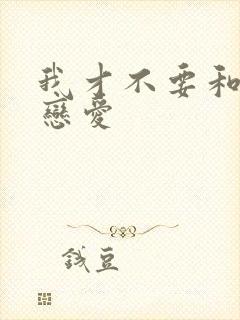 我才不要和
戀愛
錢豆